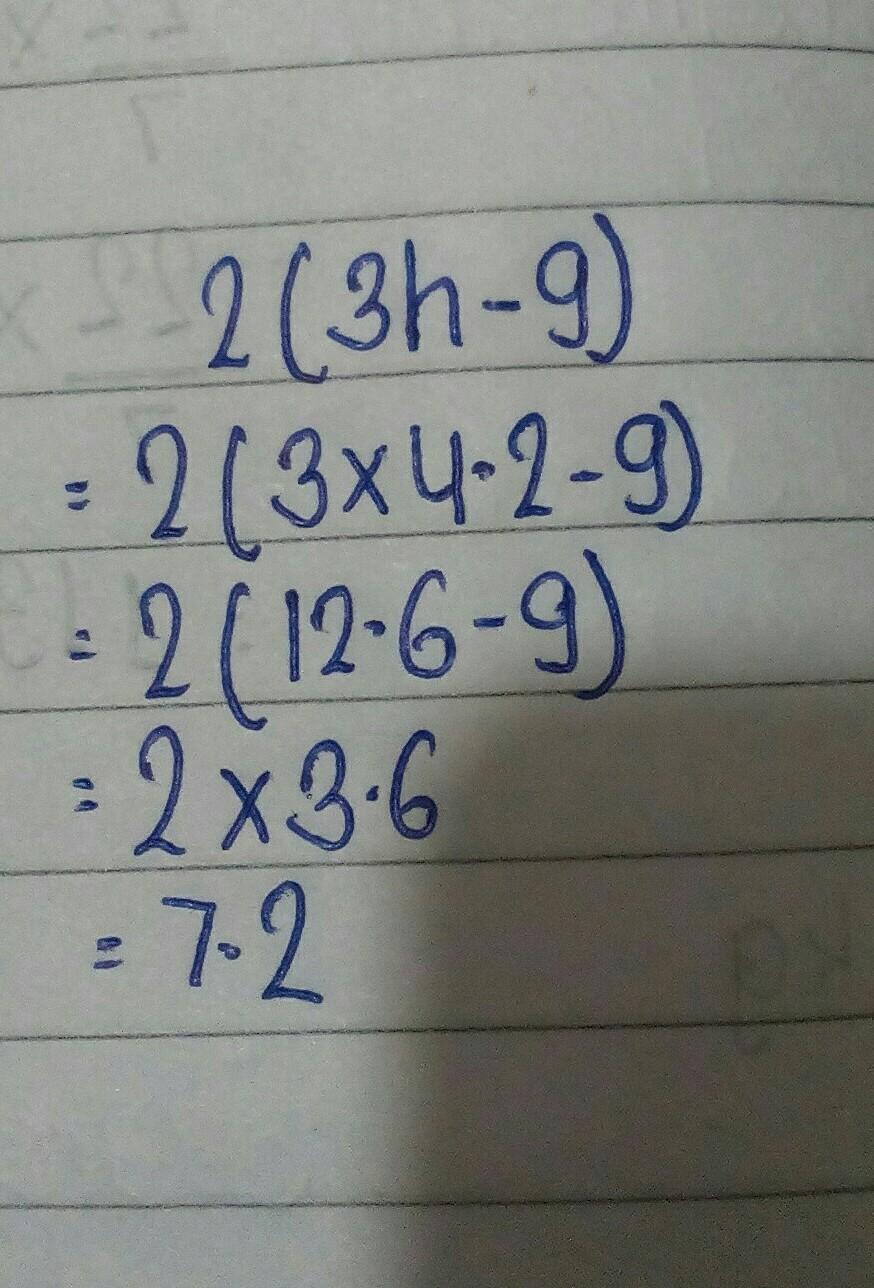 2(3h-9)
= 2(3×4·2-9)
= 2(12·6-9)
= 2×3·6
= 7·2